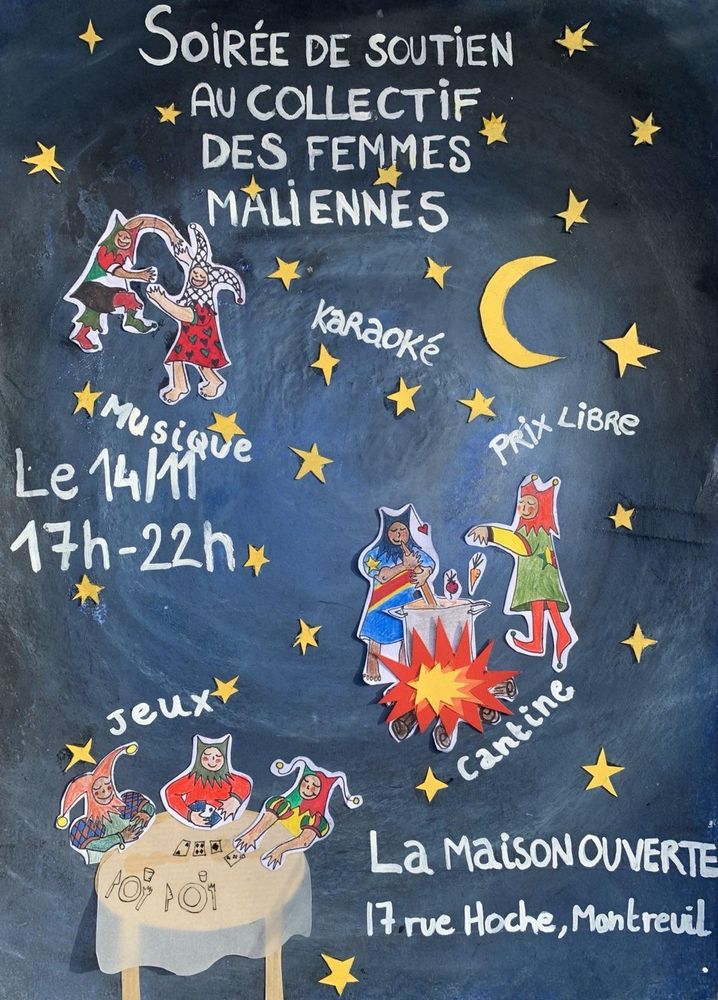 Soirée de soutien
au collectif
des femmes
maliennes
Karaoké
Prix libre
Musique
Le 14/11
17h-22h
Jeux
Cantine
La Maison Ouverte
17 rue Hoche, Montreuil